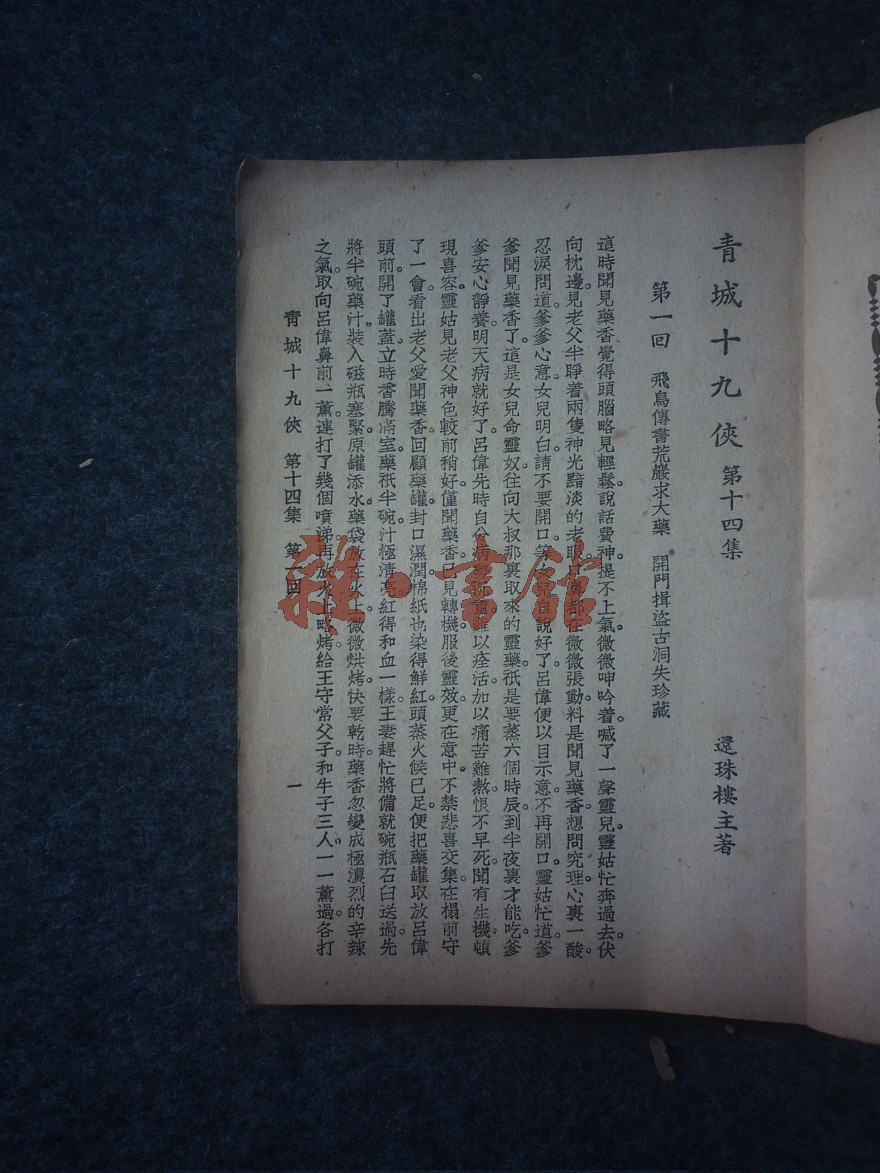 青城十九俠 第十四集
還珠樓主著
第一回 飛鳥傳書荒巖求大藥 開門揖盜古洞失珍藏
這時聞見藥香覺得頭腦略見輕鬆說話費神提不上氣微微呻吟着喊了一聲靈兒靈姑忙奔過去伏
向枕邊見老父半睜着兩隻神光黯淡的老眼口鼻都在微微張動料是聞見藥香想問究理心裏一酸
忍淚問道爹爹心意女兒明白請不要開口等女兒自說好了呂偉便以目示意不再開口靈姑忙道爹
爹聞見藥香了這是女兒命靈奴往向大叔那裏取來的靈藥祇是要蒸六個時辰到半夜裏才能吃爹
爹安心靜養明天病就好了呂偉先時自分病勢沉重難以痊活加以痛苦難熬恨不早死聞有生機頓
現喜容靈姑見老父神色較前稍好僅聞藥香已見轉機服後靈效更在意中不禁悲喜交集在榻前守
了一會看出老父愛聞藥香回顧藥罐封口濕潤棉紙也染得鮮紅頭蒸火候已足便把藥罐取放呂偉
頭前開了罐蓋立時香騰滿室藥祇半碗汁極清亮紅得和血一樣王妻趕忙將備就碗瓶石臼送過先
將半碗藥汁裝入磁瓶塞緊原罐添水藥袋放在火上微微烘烤快要乾時藥香忽變成極濃烈的辛辣
之氣取向呂偉鼻前一薰連打了幾個噴嚏再放火上略烤給王守常父子和牛子三人一一薰過各打
青城十九俠 第十四集 第一回
一
雜·書館